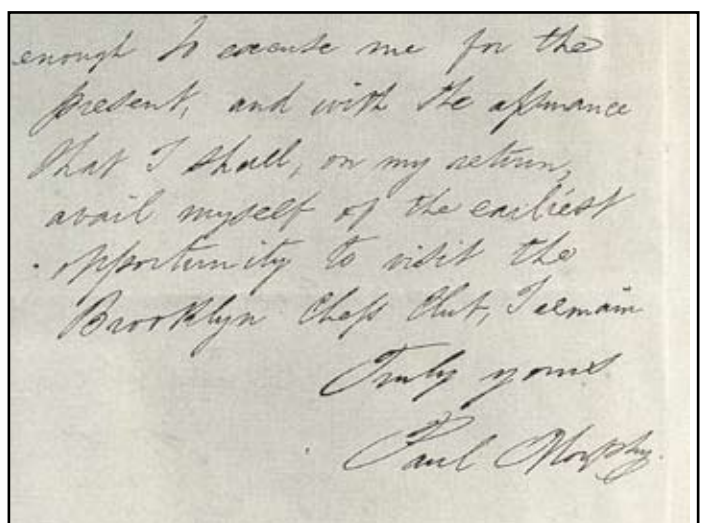 enough to excuse me for the
present, and with the assurance
that I shall, on my return,
avail myself of the earliest
opportunity to visit the
Brooklyn Chess Club, I remain
Truly yours
Paul Morphy.